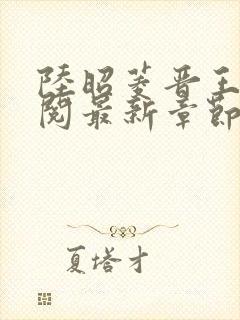 陸昭菱晉王
閱最新章節
夏塔才